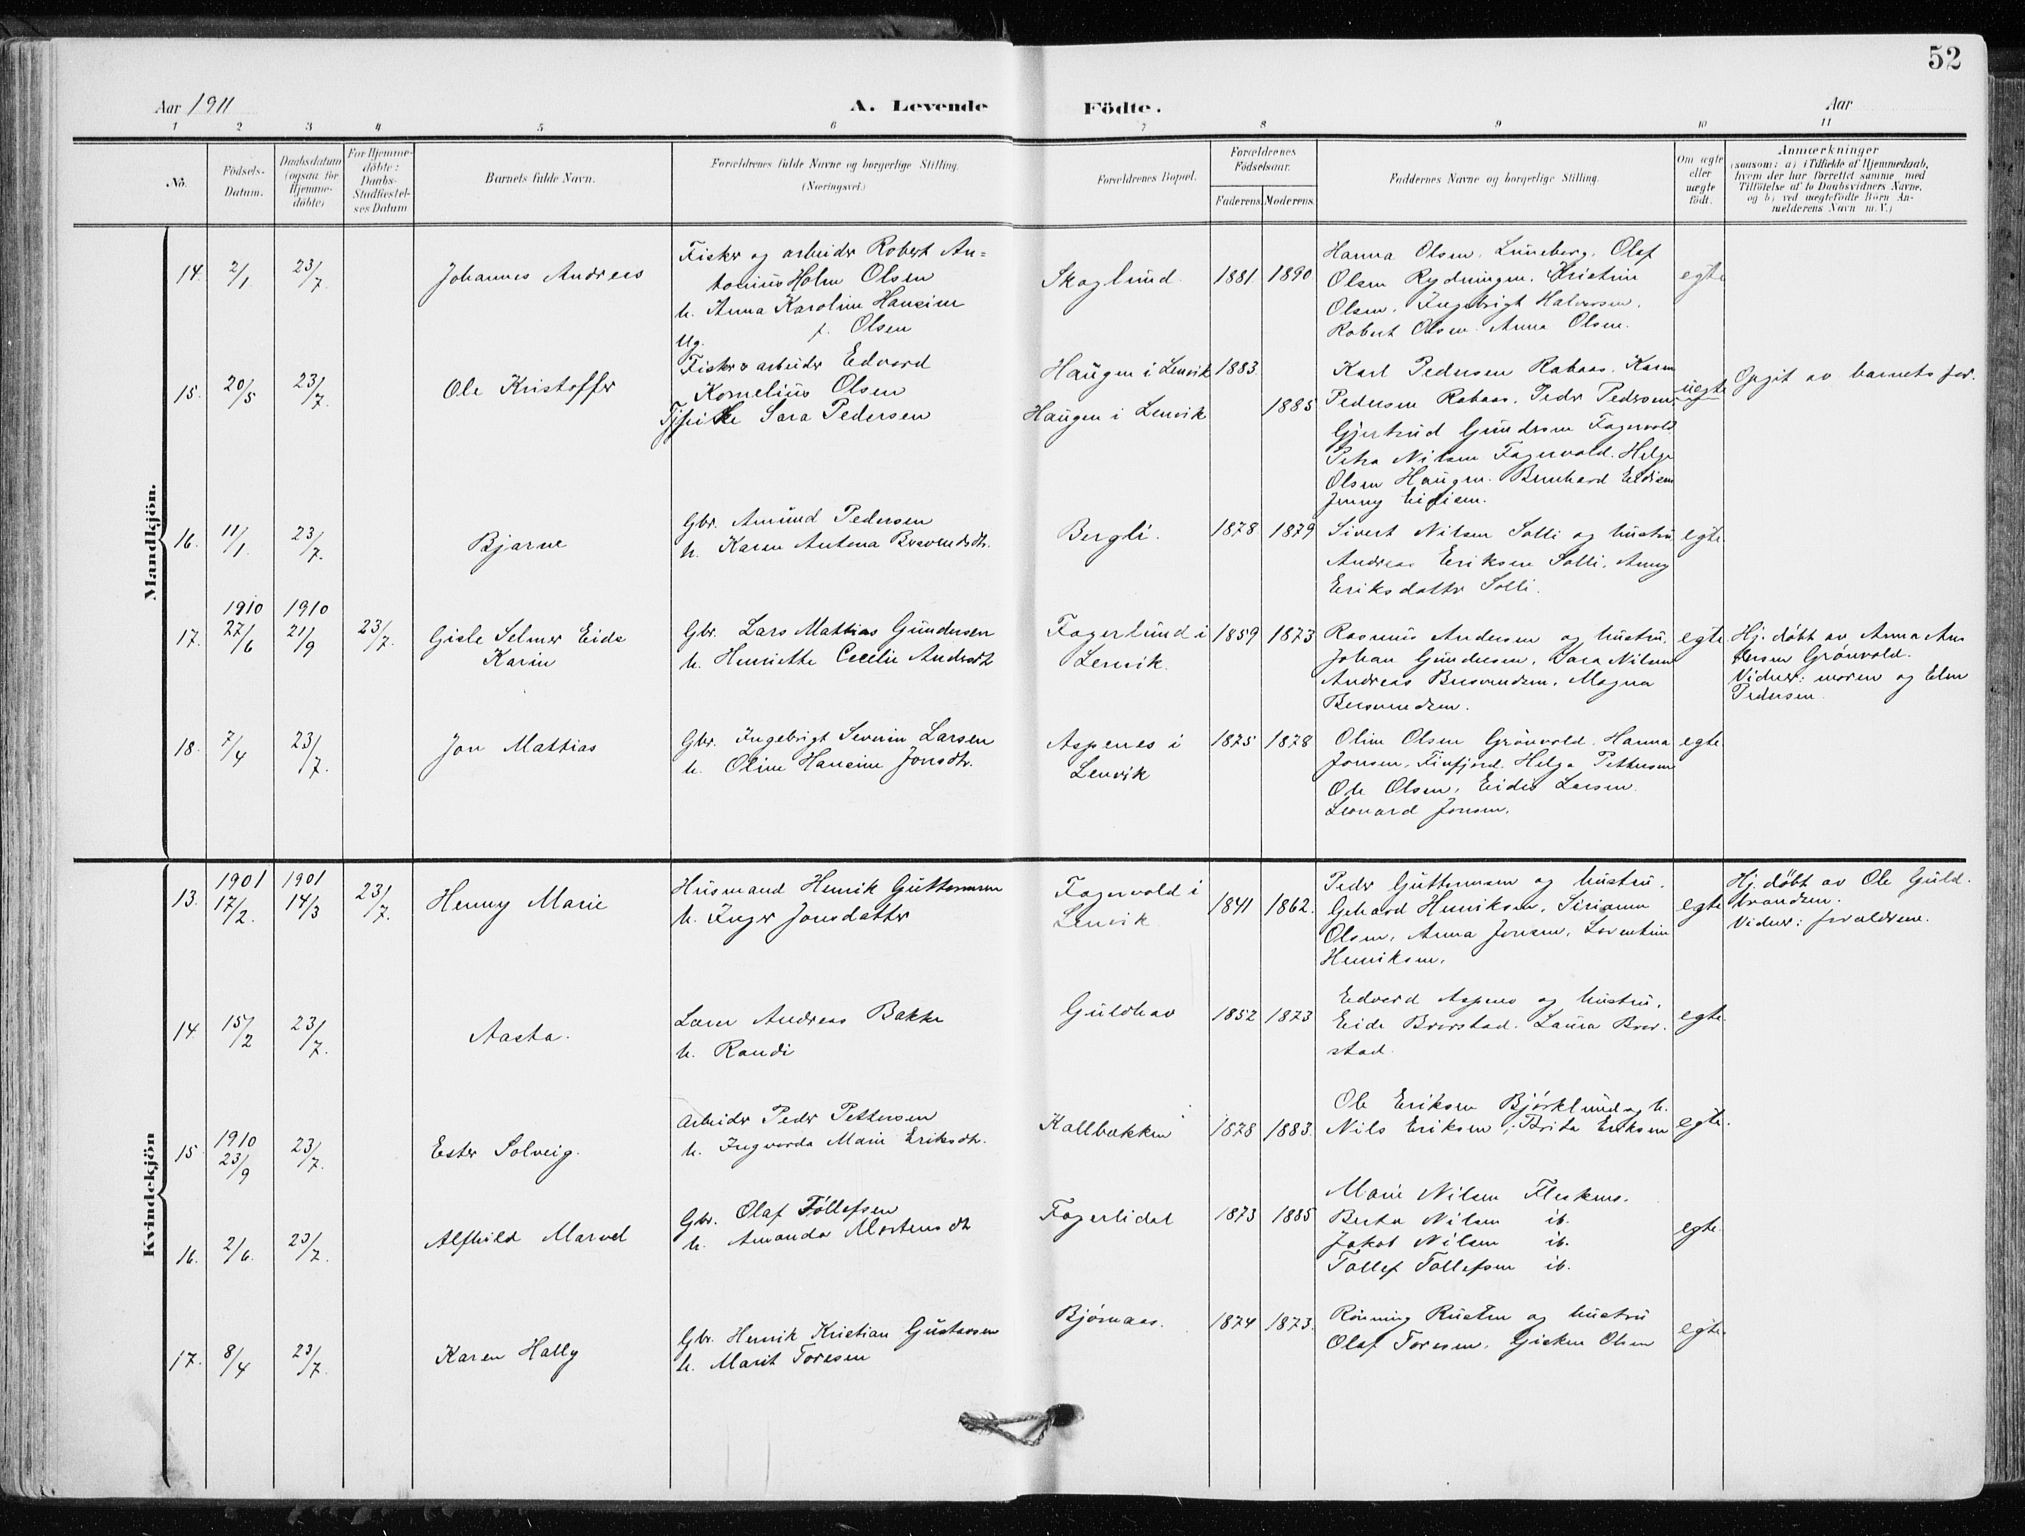 52
Aar 1911
A. Levende Födte.
Aar
1 2 3 4 5 6 7 8 9 10 11
No.
Födsels-Datum.
Daabsdatum (ogsaa for Hjemme-döbte)
For Hjemme-döbte: Daabs-Stadfæstel-ses Datum
Barnets fulde Navn.
Forældrenes fulde Navne og borgerlige Stilling. (Næringsvei.)
Forældrenes Bopæl.
Forældrenes Födselsaar.
Faderens. Moderens.
Faddernes Navne og borgerlige Stilling.
Om ægte eller uægte födt.
Anmærkninger
(saasom: a) i Tilfælde af Hjemmedaab, hvem der har forrettet samme, med Tilföielse af to Daabsvidners Navne, og b) ved uægtefödte Börn An-melderens Navn m. V.)
Mandkjön.
14. 2/1 23/7. Johannes Andreas
Fisker og arbeider Robert An-
tonius Holm Olsen
h. Anna Karoline Hansine
f. Olsen
Skoglund. 1881 1890
Hanna Olsen. Luneborg, Olaf
Olsen Rydningen. Kristine
Olsen. Ingebrigt Halvorsen.
Robert Olsen. Anna Olsen.
egte
15. 20/5 23/7. Ole Kristoffer
Ug.
Fisker & arbeider Edvard
Kornelius Olsen
Tj. pike Sara Pedersen
Haugen i Lenvik 1883.
Haugen i Lenvik 1885
Karl Pedersen Rabaas. Karen
Pedersen Rabaas. Peder Pedersen.
Gjertrud Gundersen Fagervold.
Petra Nilsen Fagervold. Helga
Olsen Haugen. Bernhard Eidisen
Jenny Eidisen.
uegte
Opgit av barnets far.
16. 11/1 23/7. Bjarne
Gbr. Amund Pedersen
h. Karen Antona Bersvendsdtr.
Bergli. 1878 1879
Sivert Nilsen Solli og hustru
Andreas Eriksen Solli. Anny
Eriksdatter Solli.
egte.
17. 1910 27/6 1910 21/9 23/7. Gisle Selmer Eide
Karin
Gbr. Lars Mattias Gundersen
h. Henriette Cecilie Andersdt
Fagerlund i
Lenvik. 1859 1873
Rasmus Andersen og hustru.
Johan Gundersen. Sara Nilsen
Andreas Bersvendsen. Magna
Bersvendsen.
egte
Hj. døbt av Anna An-
dersen Grønvold.
Vidner: moren og Elen
Pedersen.
18. 7/4 23/7. Jon Mattias
Gbr. Ingebrigt Severin Larsen
h. Oline Hansine Jonsdtr.
Aspenes i
Lenvik 1875 1878
Oline Olsen Grønvold. Hanna
Jonsen, Finfjord. Helga Pettersen
Ole Olsen, Eidis Larsen.
Leonard Jonsen.
egte
Kvindekjön
13. 1901 17/2. 1901 14/3 23/7. Henny Marie
Husmand Henrik Guttormsen
h. Inger Jonsdatter
Fagervold i
Lenvik 1841 1862.
Peder Guttormsen og hustru.
Gerhard Henriksen, Sirianna
Olsen, Anna Jonsen, Lorentine
Henriksen.
egte
Hj. døbt av Ole Guld-
brandsen.
Vidner: forældrene.
14. 15/2 23/7. Aasta.
Lærer Andreas Bakke
h. Randi
Guldhav 1852 1873
Edvard Aspenes og hustru.
Eide Brorstad. Laura Bror-
stad.
egte.
15. 1910 23/9 23/7. Ester Solveig.
Arbeider Peder Pettersen
h. Ingvarda Marie Eriksdtr.
Kallbækken 1878 1883.
Ole Eriksen Bjørklund og h.
Nils Eriksen, Brita Eriksen
egte.
16. 2/6. 23/7. Alfhild Marvel
Gbr. Olaf Tøllefsen
h. Amanda Mortensdt
Fagerlidal 1873 1885
Marie Nilsen Fleskmo.
Berta Nilsen ib.
Jakob Nilsen ib.
Tollef Tollefsen ib.
egte.
17. 8/4 23/7. Karen Hally
Gbr. Henrik Kristian Gustavsen
h. Marit Toresen
Bjørnaas. 1874 1873.
Rønning Rusten og hustru
Olaf Toresen. Gisken Olsen
egte.